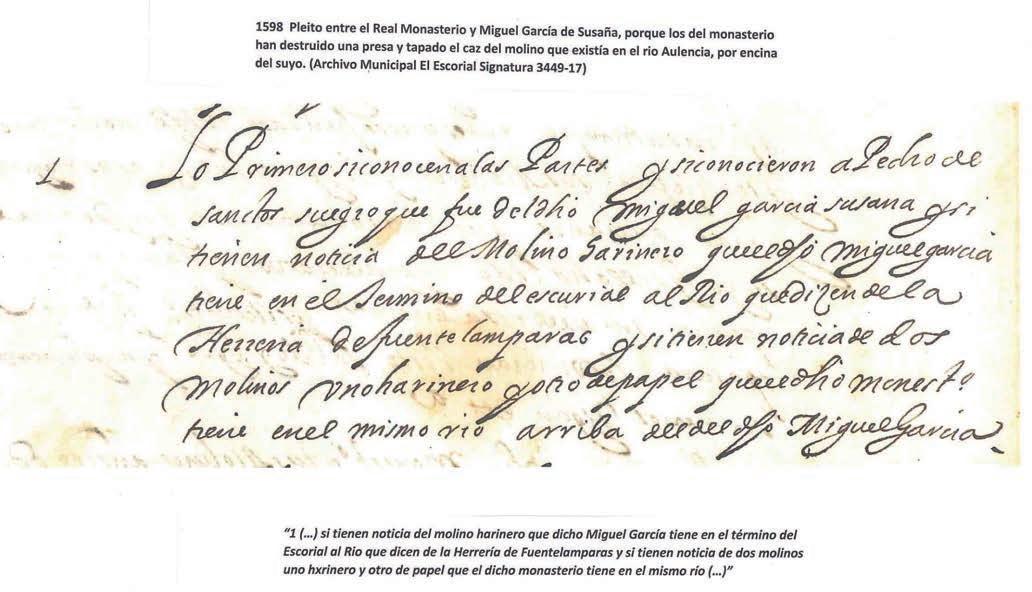 1598 Pleito entre el Real Monasterio y Miguel García de Susaña, porque los del monasterio
han destruido una presa y tapado el caz del molino que existía en el rio Aulencia, por encina
del suyo. (Archivo Municipal El Escorial Signatura 3449-17)
1 Lo Primero si conocen a las Partes y si conocieron a Pedro de
sanctos suegro que fue del dho Miguel garcia susana y si
tienen noticia del Molino harinero que el dho Miguel garcia
tiene en el termino del escurial al Rio que dizen de la
Herreria de fuentelamparas y si tienen noticia de dos
Molinos vno harinero y otro de papel que el dho monestº
tiene en el mismo rio arriba del del dho Miguel Garcia
“1 (...) si tienen noticia del molino harinero que dicho Miguel García tiene en el término del
Escorial al Rio que dicen de la Herrería de Fuentelamparas y si tienen noticia de dos molinos
uno hxrinero y otro de papel que el dicho monasterio tiene en el mismo río (...)”